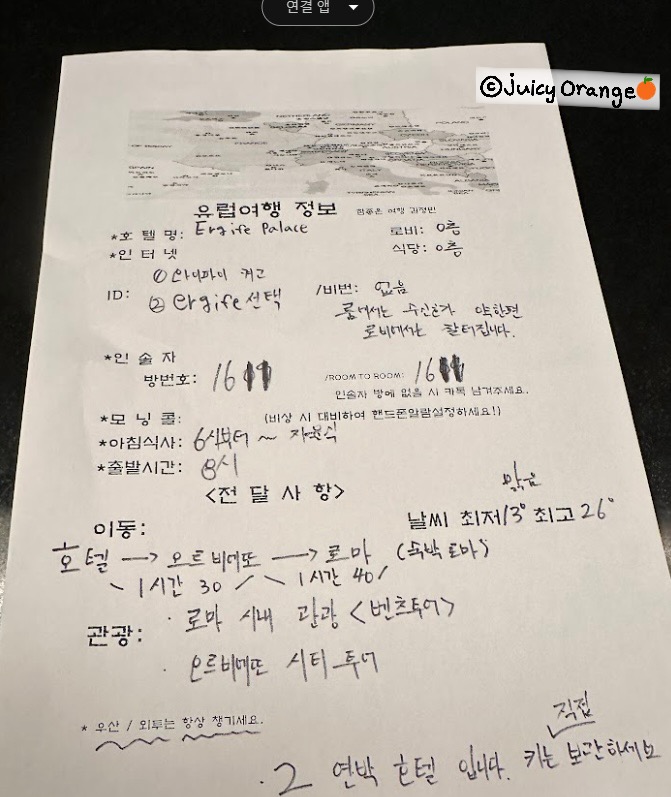 연결 앱
©Juicy Orange
유럽여행 정보
*호 텔 명: Ergife Palace
로비: 0층
*인 터 넷
식당: 0층
① 와이파이 켜고
ID: ② ergife 선택
/비번: 없음
룸에서는 수신호가 약한편
로비에서는 잘터집니다.
*인 솔 자
방번호: 16
/ROOM TO ROOM: 16
인솔자 방에 없을 시 카톡 남겨주세요.
*모 닝 콜: (비상 시 대비하여 핸드폰알람설정하세요!)
*아침식사: 6시부터 ~ 자율식
*출발시간: 8시
<전 달 사 항>
맑음
이동:
날씨 최저13° 최고26°
호텔 → 오르비에또 → 로마 (숙박 로마)
1시간 30 1시간 40
· 로마 시내 관광 <벤츠투어>
관광:
· 오르비에또 시티투어
* 우산 / 외투는 항상 챙기세요.
직접
· 2 연박 호텔 입니다. 키는 보관하세요